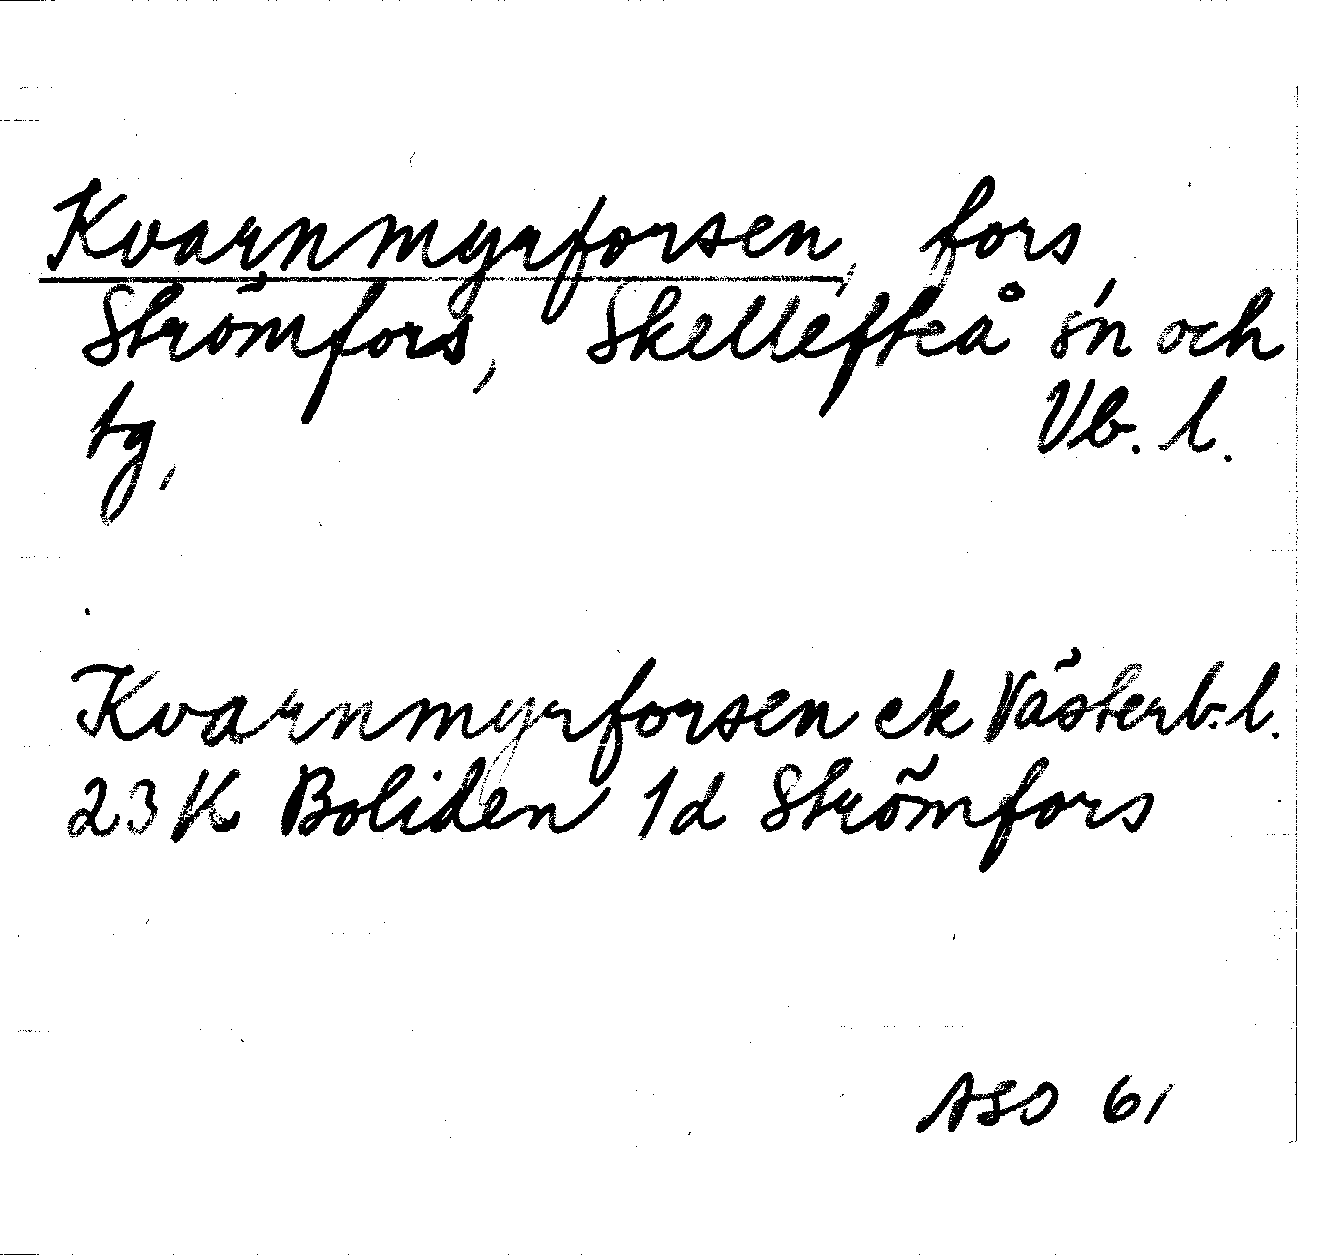 Kvarnmyrforsen, fors
Strömfors, Skellefteå sn och
tg, Vb. l.
Kvarnmyrforsen ek Västerb:l.
23K Boliden 1d Strömfors
ASO 61